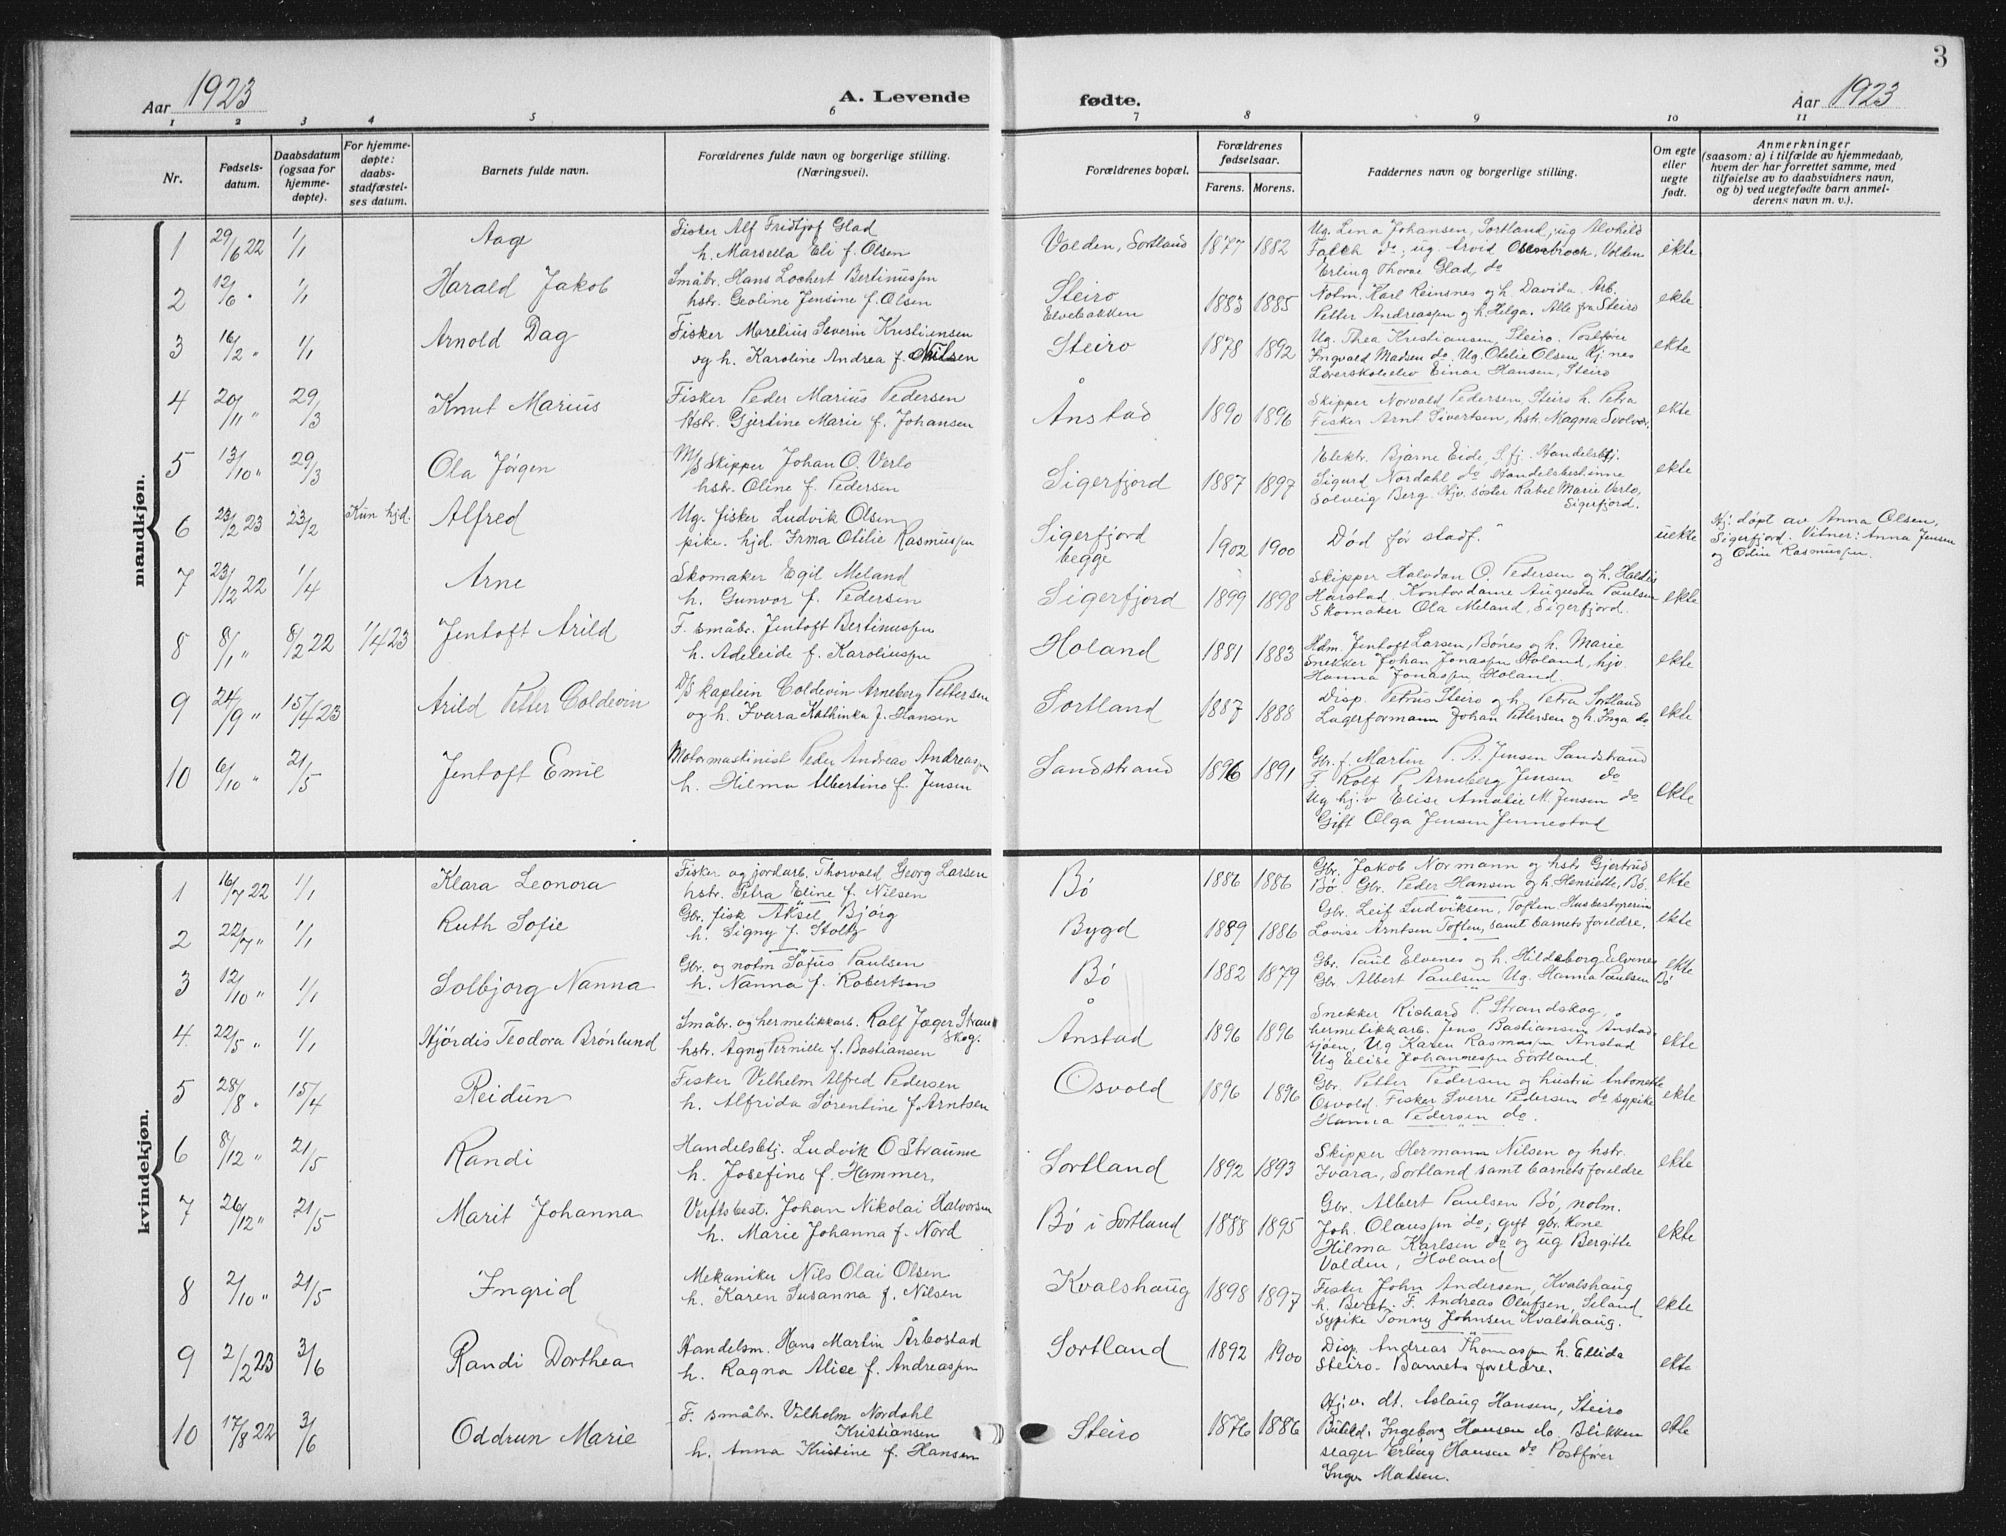 3
Aar 1923
A. Levende fødte.
Aar 1923
1 2 3 4 5 6 7 8 9 10 11
Nr.
Fødsels-
datum.
Daabsdatum
(ogsaa for
hjemme-
døpte).
For hjemme-
døpte:
daabs-
stadfæstel-
ses datum.
Barnets fulde navn.
Forældrenes fulde navn og borgerlige stilling.
(Næringsvei).
Forældrenes bopæl.
Forældrenes
fødselsaar.
Farens. Morens.
Faddernes navn og borgerlige stilling.
Om egte
eller
uegte
født.
Anmerkninger
(saasom: a) i tilfælde av hjemmedaab,
hvem der har forrettet samme, med
tilføielse av to daabsvidners navn,
og b) ved uegtefødte barn anmel-
derens navn m. v.).
mandkjøn.
1 29/6 22 1/1 Aage
Fisker Alf Fridtjof Glad
h. Marsella Eli f. Olsen
Valden, Sortland 1877 1882
Ug. Lina Johansen, Sortland, ug Alvhild
Falch do, ug. Arvid Volden
Erling Thorae Glad, do
ekte
2 12/6 " 1/1 Harald Jakob
Småbr. Hans Lochert Bertinussen
hstr. Geoline Jensine f. Olsen
Steiro
Elvebakken 1883 1885
Notm. Karl Reinsnes og h. Davida. Arb.
Petter Andreassen og h. Helga. Alle fra Steiro
ekte
3 16/2 " 1/1 Arnold Dag
Fisker Marelius Severin Kristiansen
og h. Karoline Andrea f. Nilsen
Steiro 1878 1892
Ug. Thea Kristiansen, Steiro. Postfører
Ingvald Madsen do. Ug. Otelie Olsen Kj.nes
Lærerskoleelev Einar Hansen, Steiro
ekte
4 20/11 " 29/3 Knut Marius
Fisker Peder Marius Pedersen
Hstr. Gjertine Marie f. Johansen
Ånstad 1890 1896
Skipper Norvald Pedersen, Steiro h. Petra
Fisker Arnt Sivertsen, hstr. Magna Svolvær.
ekte
5 13/10 " 29/3 Ola Jørgen
M/S Skipper Johan O. Verlo
hstr. Oline f. Pedersen
Sigerfjord 1887 1897
Elektr. Bjarne Eide S.fj. Handelsbtj.
Sigurd Nordahl do Handelsbestinne
Solveig Berg. Hjv. søster Rakel Marie Verlo,
Sigerfjord.
ekte
6 23/2 23 23/2 Kun hjd. Alfred
Ug. fisker Ludvik Olsen
pike. hjd. Irma Otilie Rasmussen
Sigerfjord
begge 1902 1900
Død før stadf.
uekte
Hj. døpt av Anna Olsen,
Sigerfjord. Vitner: Anna Jensen
og Odin Rasmussen.
7 23/12 22 1/4 Arne
Skomaker Egil Meland
h. Gunvor f. Pedersen
Sigerfjord 1899 1898
Skipper Halvdan O. Pedersen og h. Haldis
Harstad. Kontordame Augusta Paulsen
Skomaker Ola Meland, Sigerfjord.
ekte
8 8/1 " 8/2 22 1/4 23 Jentoft Arild
F. småbr. Jentoft Bertinussen
h. Adeleide f. Karoliussen
Holand 1881 1883
Hdm. Jentoft Larsen, Bønes og h. Marie
Snekker Johan Jonassen Holand, hjv.
Hanna Jonassen Holand.
ekte
9 24/9 " 15/4 23 Arild Petter Coldevin
D/S kaptein Coldevin Arneberg Pettersen
og h. Ivara Kathinka f. Hansen
Sortland 1887 1888
Disp. Petrus Steiro og h. Petra Sortland
Lagerformann Johan Pettersen og h. Inga do
ekte
10 6/10 " 21/5 Jentoft Emil
Motormaskinist Peder Andreas Andreassen
h. Hilma Albertine f. Jensen
Sandstrand 1896 1891
Gbr. f. Martin P. A. Jensen Sandstrand
F. Rolf P. Arneberg Jensen do
Ug hj.v Elise Amalie M. Jensen do
Gift Olga Jensen Jennestad
ekte
kvindekjøn.
1 16/7 22 1/1 Klara Leonora
Fisker og jordarb. Thorvald Georg Larsen
hstr. Petra Eline f. Nilsen
Bø 1886 1886
Gbr. Jakob Normann og hstr Gjertrud
Bø. Gbr. Peder Hansen og h. Henriette, Bø.
ekte
2 22/7 " 1/1 Ruth Sofie
Gbr. fisk Aksel Bjørg
h. Signy f. Stoltz
Bygd 1889 1886
Gbr. Leif Ludviksen, Toften Husbestyrerin
Lovise Arntsen Toften, samt barnets foreldre.
ekte
3 12/10 " 1/1 Solbjørg Nanna
Gbr. og notm Sofus Paulsen
h. Nanna f. Robertsen
Bø 1882 1879
Gbr. Paul Elvenes og h. Hildeborg Elvenes
Gbr. Albert Paulsen Ug. Hanna Paulsen Bø
ekte
4 22/5 " 1/1 Hjørdis Teodora Brønlund
Småbr. og hermetikkarb. Ralf Jæger Strand
skog.
hstr. Agny Pernille f. Bastiansen
Ånstad 1896 1896
Snekker Rishard P. Strandskog,
hermetikkarb. Jens Bastiansen Anstad
sjøen, Ug Karen Rasmussen Anstad
Ug Elise Johannessen Sortland
ekte
5 28/8 " 15/4 Reidun
Fisker Vilhelm Alfred Pedersen
h. Alfrida Sørentine f. Arntsen
Osvold 1896 1896
Gbr. Petter Pedersen og hustru Antonette
Osvold. Fisker Sverre Pedersen do sypike
Hanna Pedersen do.
ekte
6 8/12 " 21/5 Randi
Handelsbtj. Ludvik O Straume
h. Josefine f. Hammer
Sortland 1892 1893
Skipper Hermann Nilsen og hstr.
Ivara, Sortland samt barnets foreldre
ekte
7 26/12 " 21/5 Marit Johanna
Verftsbest. Johan Nikolai Halvorsen
h. Marie Johanna f. Nord
Bø i Sortland 1888 1895
Gbr. Albert Paulsen Bø, notm.
Joh. Olaussen do; gift gbr. kone
Hilma Karlsen do og ug Bergitte
Valden, Holand
ekte
8 2/10 " 21/5 Ingrid
Mekaniker Nils Olai Olsen
h. Karen Susanna f. Nilsen
Kvalshaug 1898 1897
Fisker John Andersen, Kvalshaug
h. Beret. F. Andreas Olufsen, Seland
Sypike Tonny Johnsen Kvalshaug.
ekte
9 2/2 23 3/6 Randi Dorthea
Handelsm. Hans Martin Årbostad
h. Ragna Alice f. Andreassen
Sortland 1892 1900
Disp. Andreas Thomassen h. Ellida
Steiro. Barnets foreldre.
ekte
10 17/8 22 3/6 Oddrun Marie
F. småbr. Vilhelm Nordahl
Kristiansen
h. Anna Kristine f. Hansen
Steiro 1876 1886
Hj.v. dt. Aslaug Hansen, Steiro
Ingeborg Hansen do Blikken
slager Erling Hansen do Postfører
Ingv. Madsen.
ekte